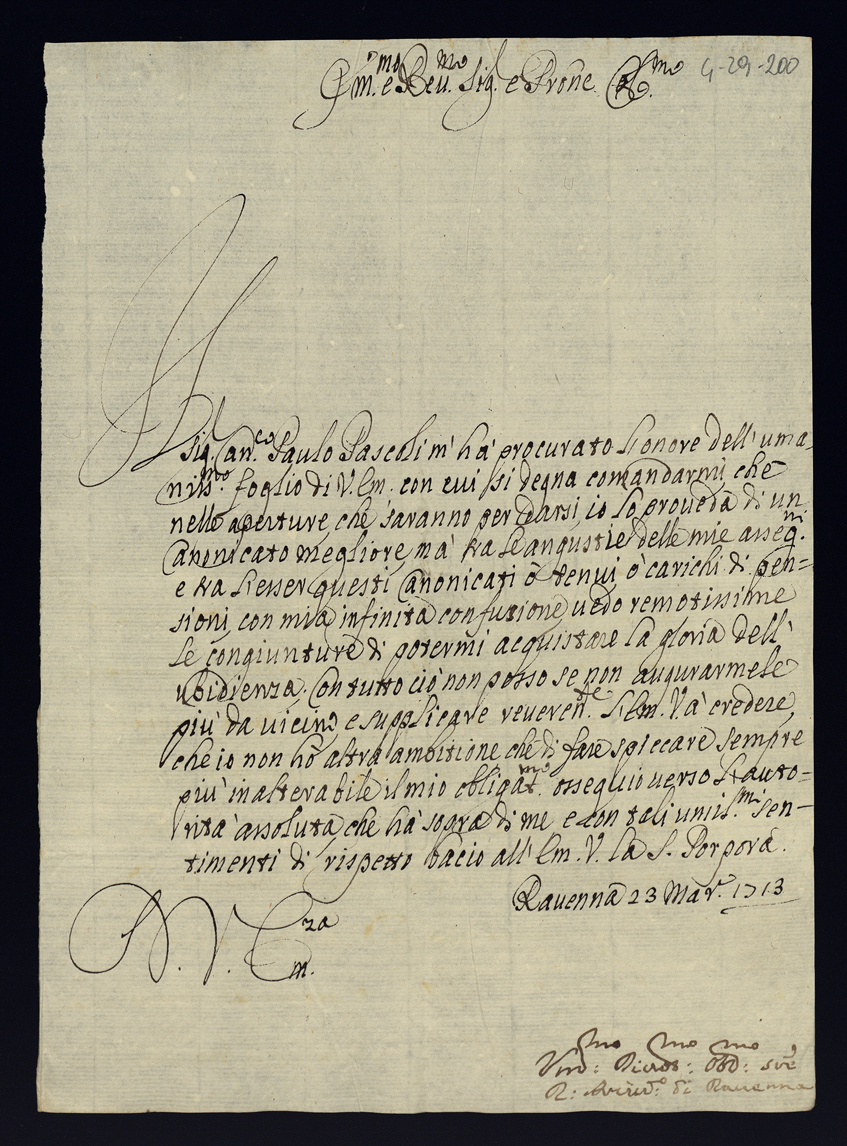 Em.mo e Reu.mo Sig. e Prône
4-29-200
Il
Sig. Can.co Paulo Pascoli m'hà procurato l'onore dell'uma,
niss.mo foglio di V. Em. con cui si degna comandarmi, che
nelle aperture, che saranno per darsi io lo proueda di un
Canonicato megliore, mà tra le angustie delle mie asseg.ni
e tra l'esser questi Canonicati ò tenui ò carichi di pen=
sioni, con mia infinita confusione uedo remotissime
le congiunture di potermi acquistare la gloria dell'
ubidienza. Con tutto ciò non posso se non augurarmele
più da uicino, e supplicare reueren.te l'Em. V. à credere,
che io non hò altra ambitione che di fare spiccare sempre
più inalterabile il mio obligat.mo ossequio uerso l'auto=
rità assoluta, che hà sopra di me e con tali umis.mi sen=
timenti di rispetto bacio all'Em. V. la S. Porpora.
Rauenna 23 Mar. 1713
D. V. Em.za
di Rauenna